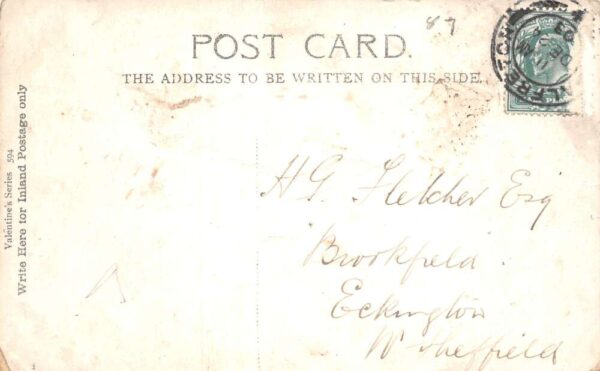 87
POST CARD.
THE ADDRESS TO BE WRITTEN ON THIS SIDE.
Valentine's Series 594
Write Here for Inland Postage only
H G Fletcher Esq
Brookfield.
Eckington
Nr Sheffield